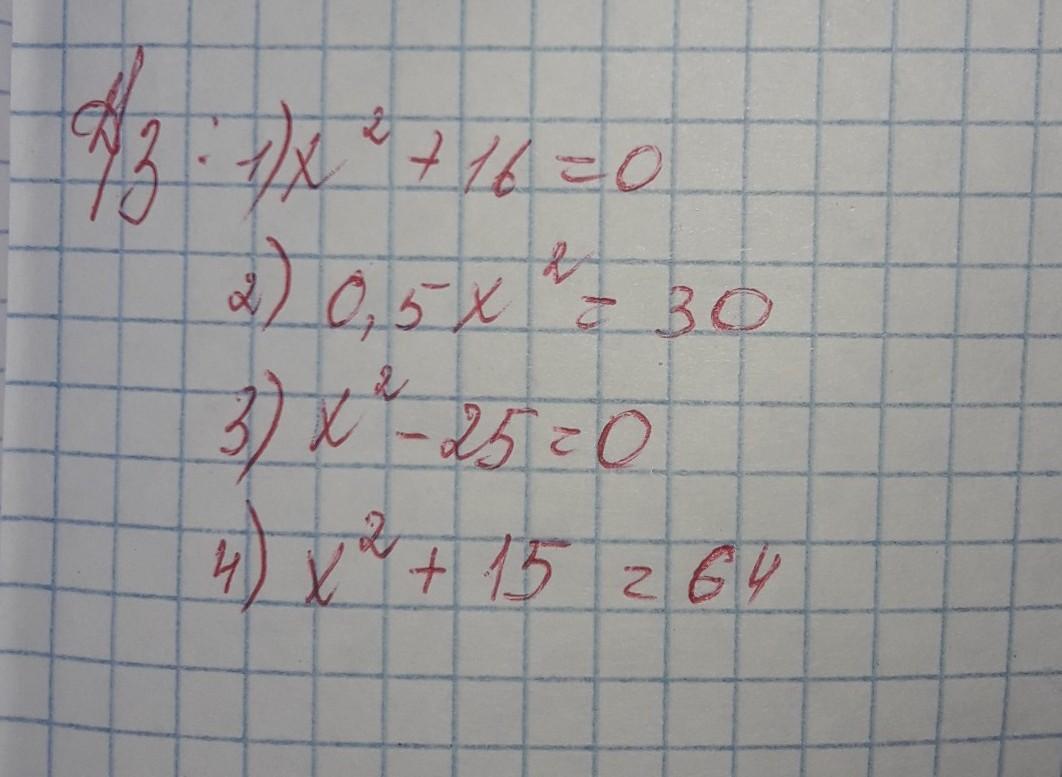 Д/З: 1) x² + 16 = 0
2) 0,5x² = 30
3) x² - 25 = 0
4) x² + 15 = 64